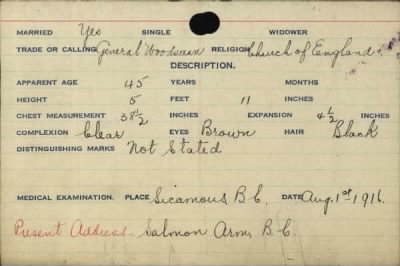 MARRIED Yes SINGLE WIDOWER
TRADE OR CALLING General Woodsman RELIGION Church of England.
DESCRIPTION.
APPARENT AGE 45 YEARS MONTHS
HEIGHT 5 FEET 11 INCHES
CHEST MEASUREMENT 38½ INCHES EXPANSION 4½ INCHES
COMPLEXION Clear EYES Brown HAIR Black
DISTINGUISHING MARKS Not Stated
MEDICAL EXAMINATION. PLACE Sicamous B.C. DATE Aug. 1st, 1916.
Present Address Salmon Arm, B.C.